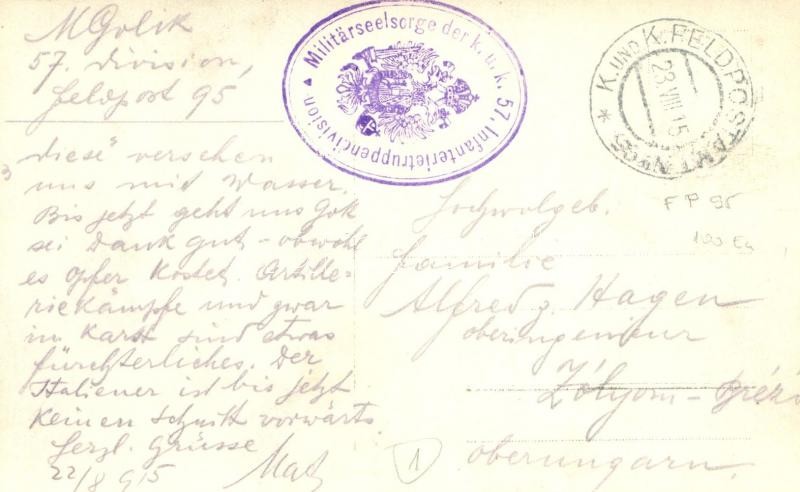 M Golik
57. Division,
Feldpost 95
Militärseelsorge der k. u. k. 57. Infanterietruppendivision
* K. UND K. FELDPOSTAMT N° 95
23 VIII 15
"diese" versehen
uns mit Wasser.
Bis jetzt geht uns Gott
sei Dank gut – obwohl
es Opfer kostet. Artille-
riekämpfe und zwar
im Karst sind etwas
fürchterliches. Der
Italiener ist bis jetzt
keinen Schritt vorwärts.
Herzl. Grüsse
22/8 915
F P 95
100
Hochwolgeb.
Familie
Alfred z. Hagen
oberingenieur
Zólyom –
oberungarn.
1